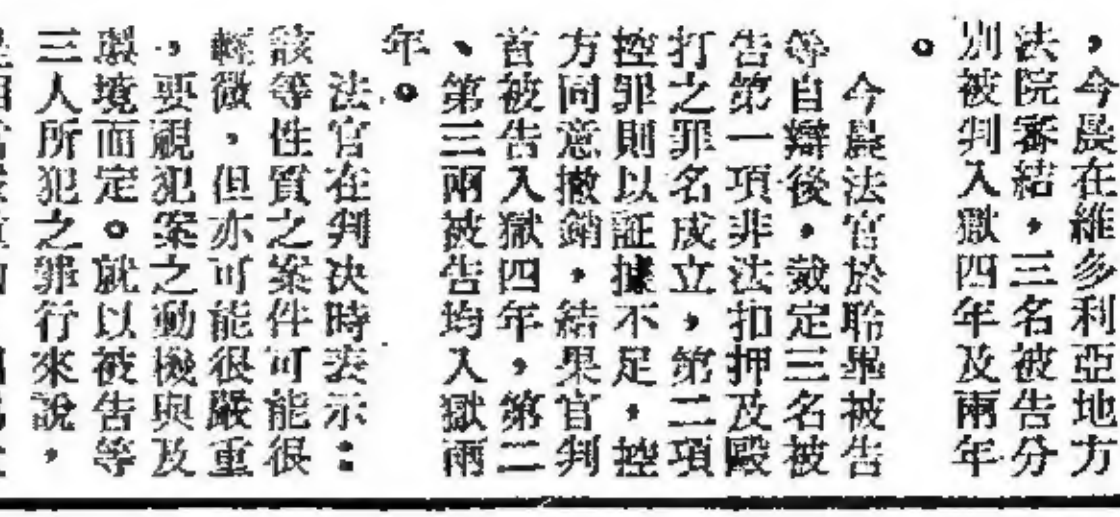 ，今晨在維多利亞地方
法院審結，三名被告分
別被判入獄四年及兩年
。
今晨法官於聆畢被告
等自辯後，裁定三名被
告第一項非法扣押及毆
打之罪名成立，第二項
控罪則以証據不足，控
方同意撤銷，結果官判
首被告入獄四年，第二
、第三兩被告均入獄兩
年。
法官在判決時表示：
該等性質之案件可能很
輕微，但亦可能很嚴重
，要視犯案之動機與及
環境而定。就以被告等
三人所犯之罪行來說，